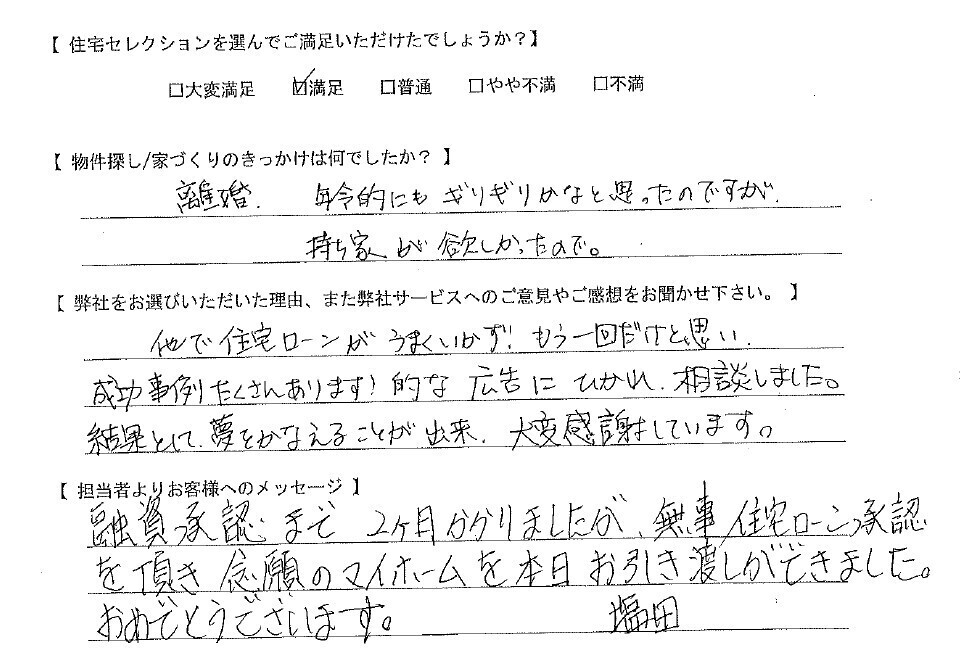 【 住宅セレクションを選んでご満足いただけたでしょうか？】
□大変満足 ☑満足 □普通 □やや不満 □不満
【 物件探し/家づくりのきっかけは何でしたか？ 】
離婚. 年令的にも ギリギリかなと思ったのですが.
持ち家が欲しかったので。
【 弊社をお選びいただいた理由、また弊社サービスへのご意見やご感想をお聞かせ下さい。 】
他で住宅ローンがうまくいかず！もう一回だけと思い.
成功事例たくさんあります！的な広告にひかれ.相談しました。
結果として.夢をかなえることが出来、大変感謝しています。
【 担当者よりお客様へのメッセージ 】
融資承認まで2ヶ月かかりましたが、無事住宅ローン承認
を頂き念願のマイホームを本日お引き渡しができました。
おめでとうございます。 塩田